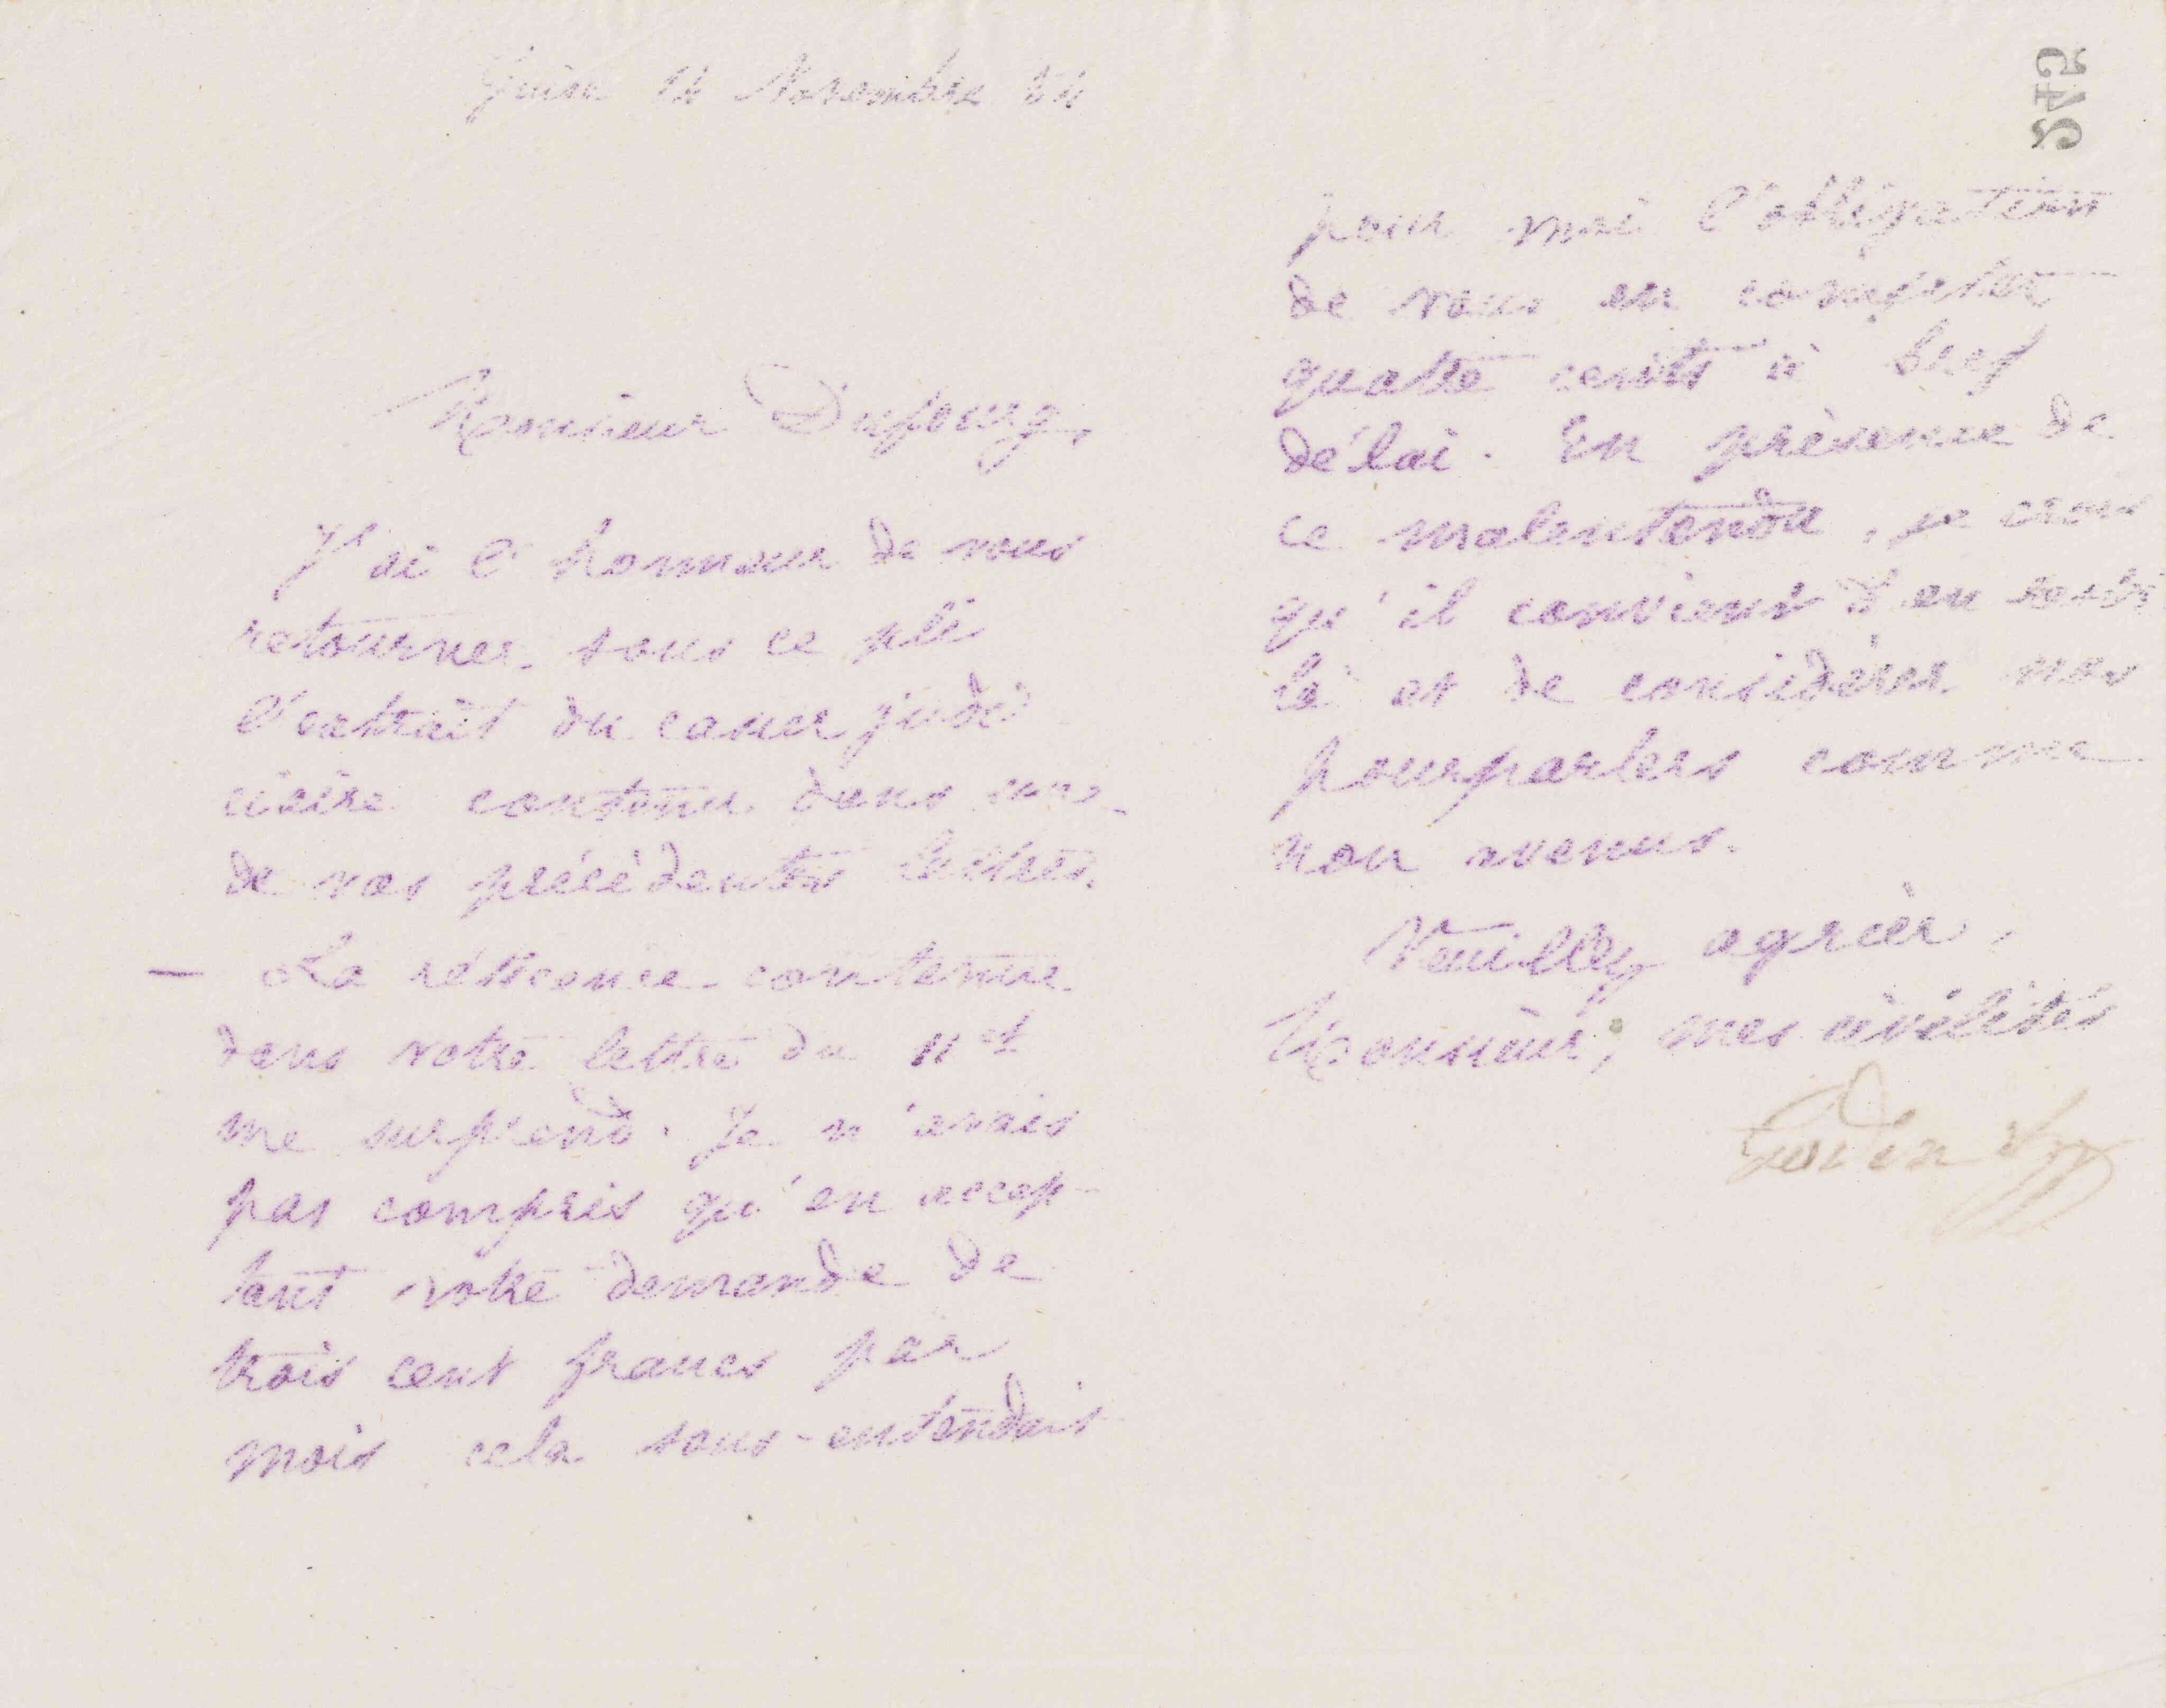 Guise 14 Novembre 84
Monsieur Dufourg,
J'ai l'honneur de vous
retourner sous ce pli
l'extrait du casier judi
ciaire contenu dans une
de vos précédentes lettres.
— La réticence contenue
dans votre lettre du 11 ct
me surprend. Je n'avais
pas compris qu'en accep-
tant votre demande de
trois cent francs par
mois cela sous-entendait
545
pour moi l'obligation
de vous en compter
quatre cents à bref
délai. En présence de
ce malentendu, je crois
qu'il convient d'en rester
là et de considérer nos
pourparlers comme
non avenus.
Veuillez agréer,
Monsieur, mes civilités
Godin